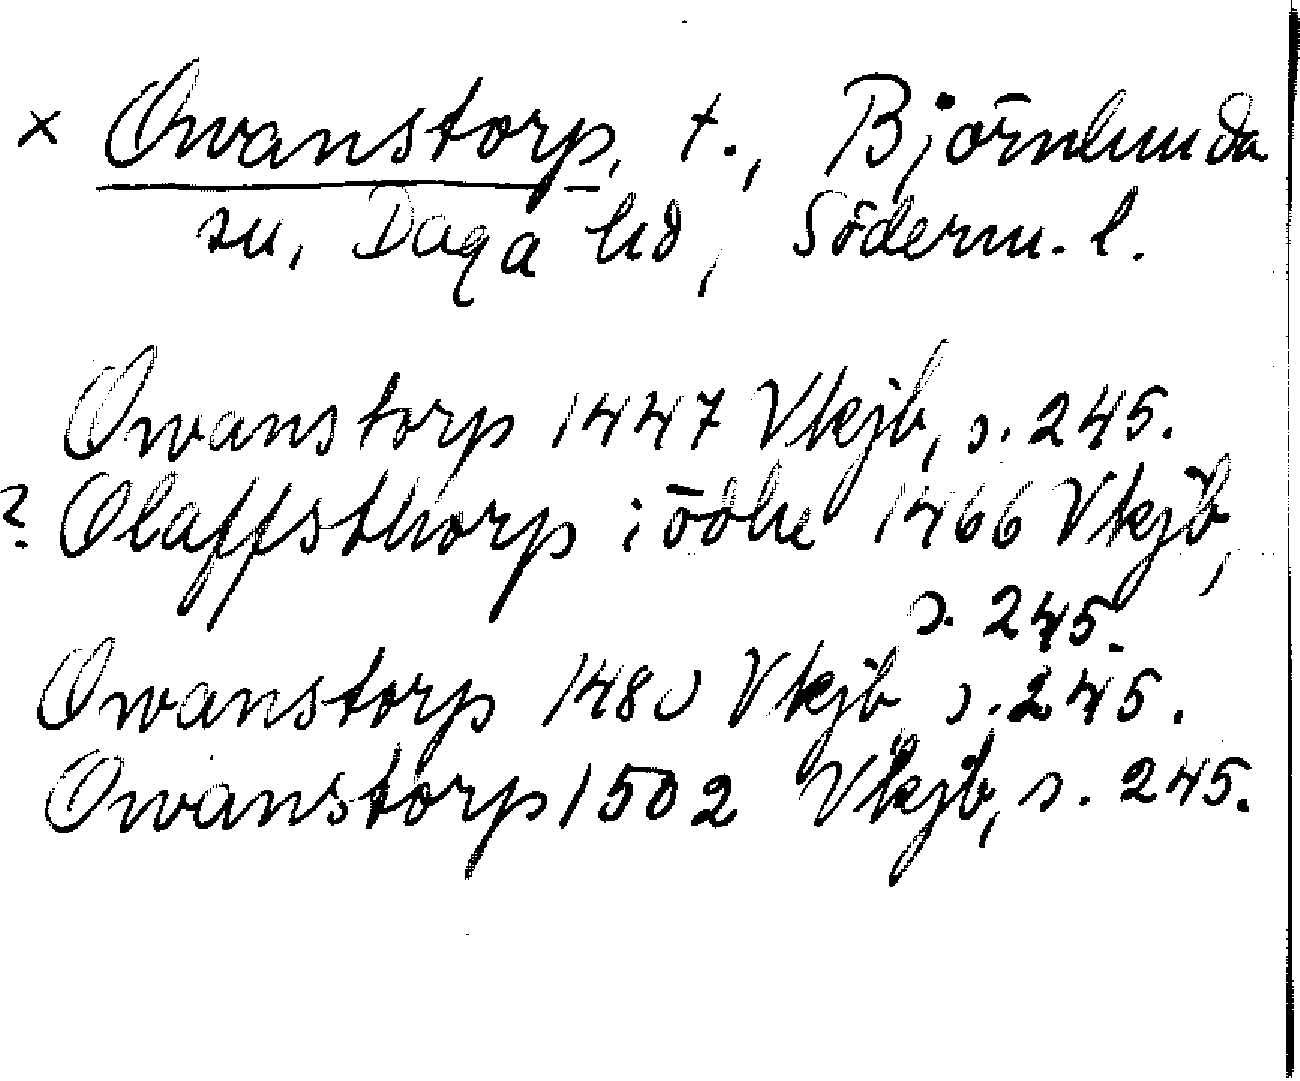 × Owanstorp, t., Björnlunda
sn, Daga hd, Söderm. l.
Owanstorp 1447 Vkjb, s. 245.
? Olaffsthorp i ödhe 1466 Vkjb,
s. 245.
Owanstorp 1480 Vkjb s. 245.
Owanstorp 1502 Vkjb, s. 245.